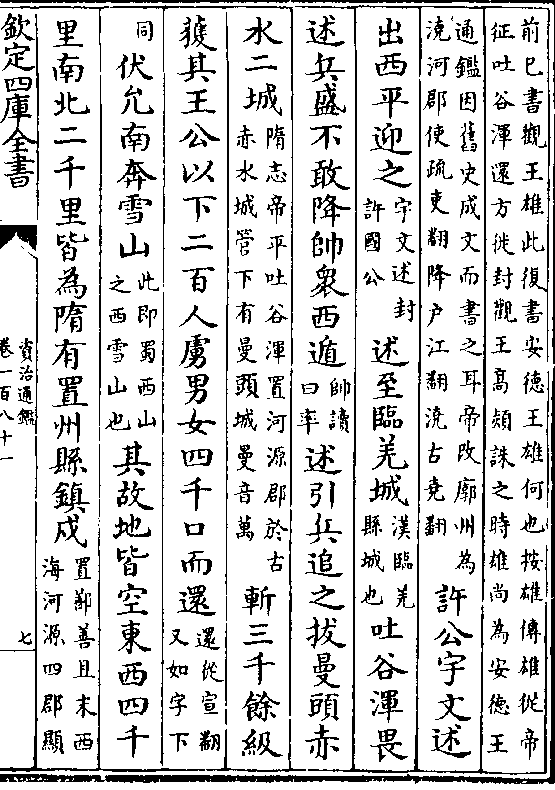 前已書觀王雄此復書安德王雄何也按雄傳雄從帝
征吐谷渾還方徙封觀王高熲誅之時雄尚為安德王
通鑑因舊史成文而書之耳帝改廓州為
澆河郡使疏吏翻降户江翻澆古堯翻
許公宇文述
出西平迎之
宇文述封
許國公
述至臨羌城
漢臨羌
縣城也
吐谷渾畏
述兵盛不敢降帥衆西遁
帥讀
曰率
述引兵追之拔曼頭赤
水二城
隋志帝平吐谷渾置河源郡於古
赤水城管下有曼頭城曼音萬
斬三千餘級
獲其王公以下二百人虜男女四千口而還
還從宣翻
又如字下
同
伏允南奔雪山
此即蜀西山
之西雪山也
其故地皆空東西四千
里南北二千里皆為隋有置州縣鎮戍
置鄯善且末西
海河源四郡顯
欽定四庫全書
資治通鑑
卷一百八十一
七